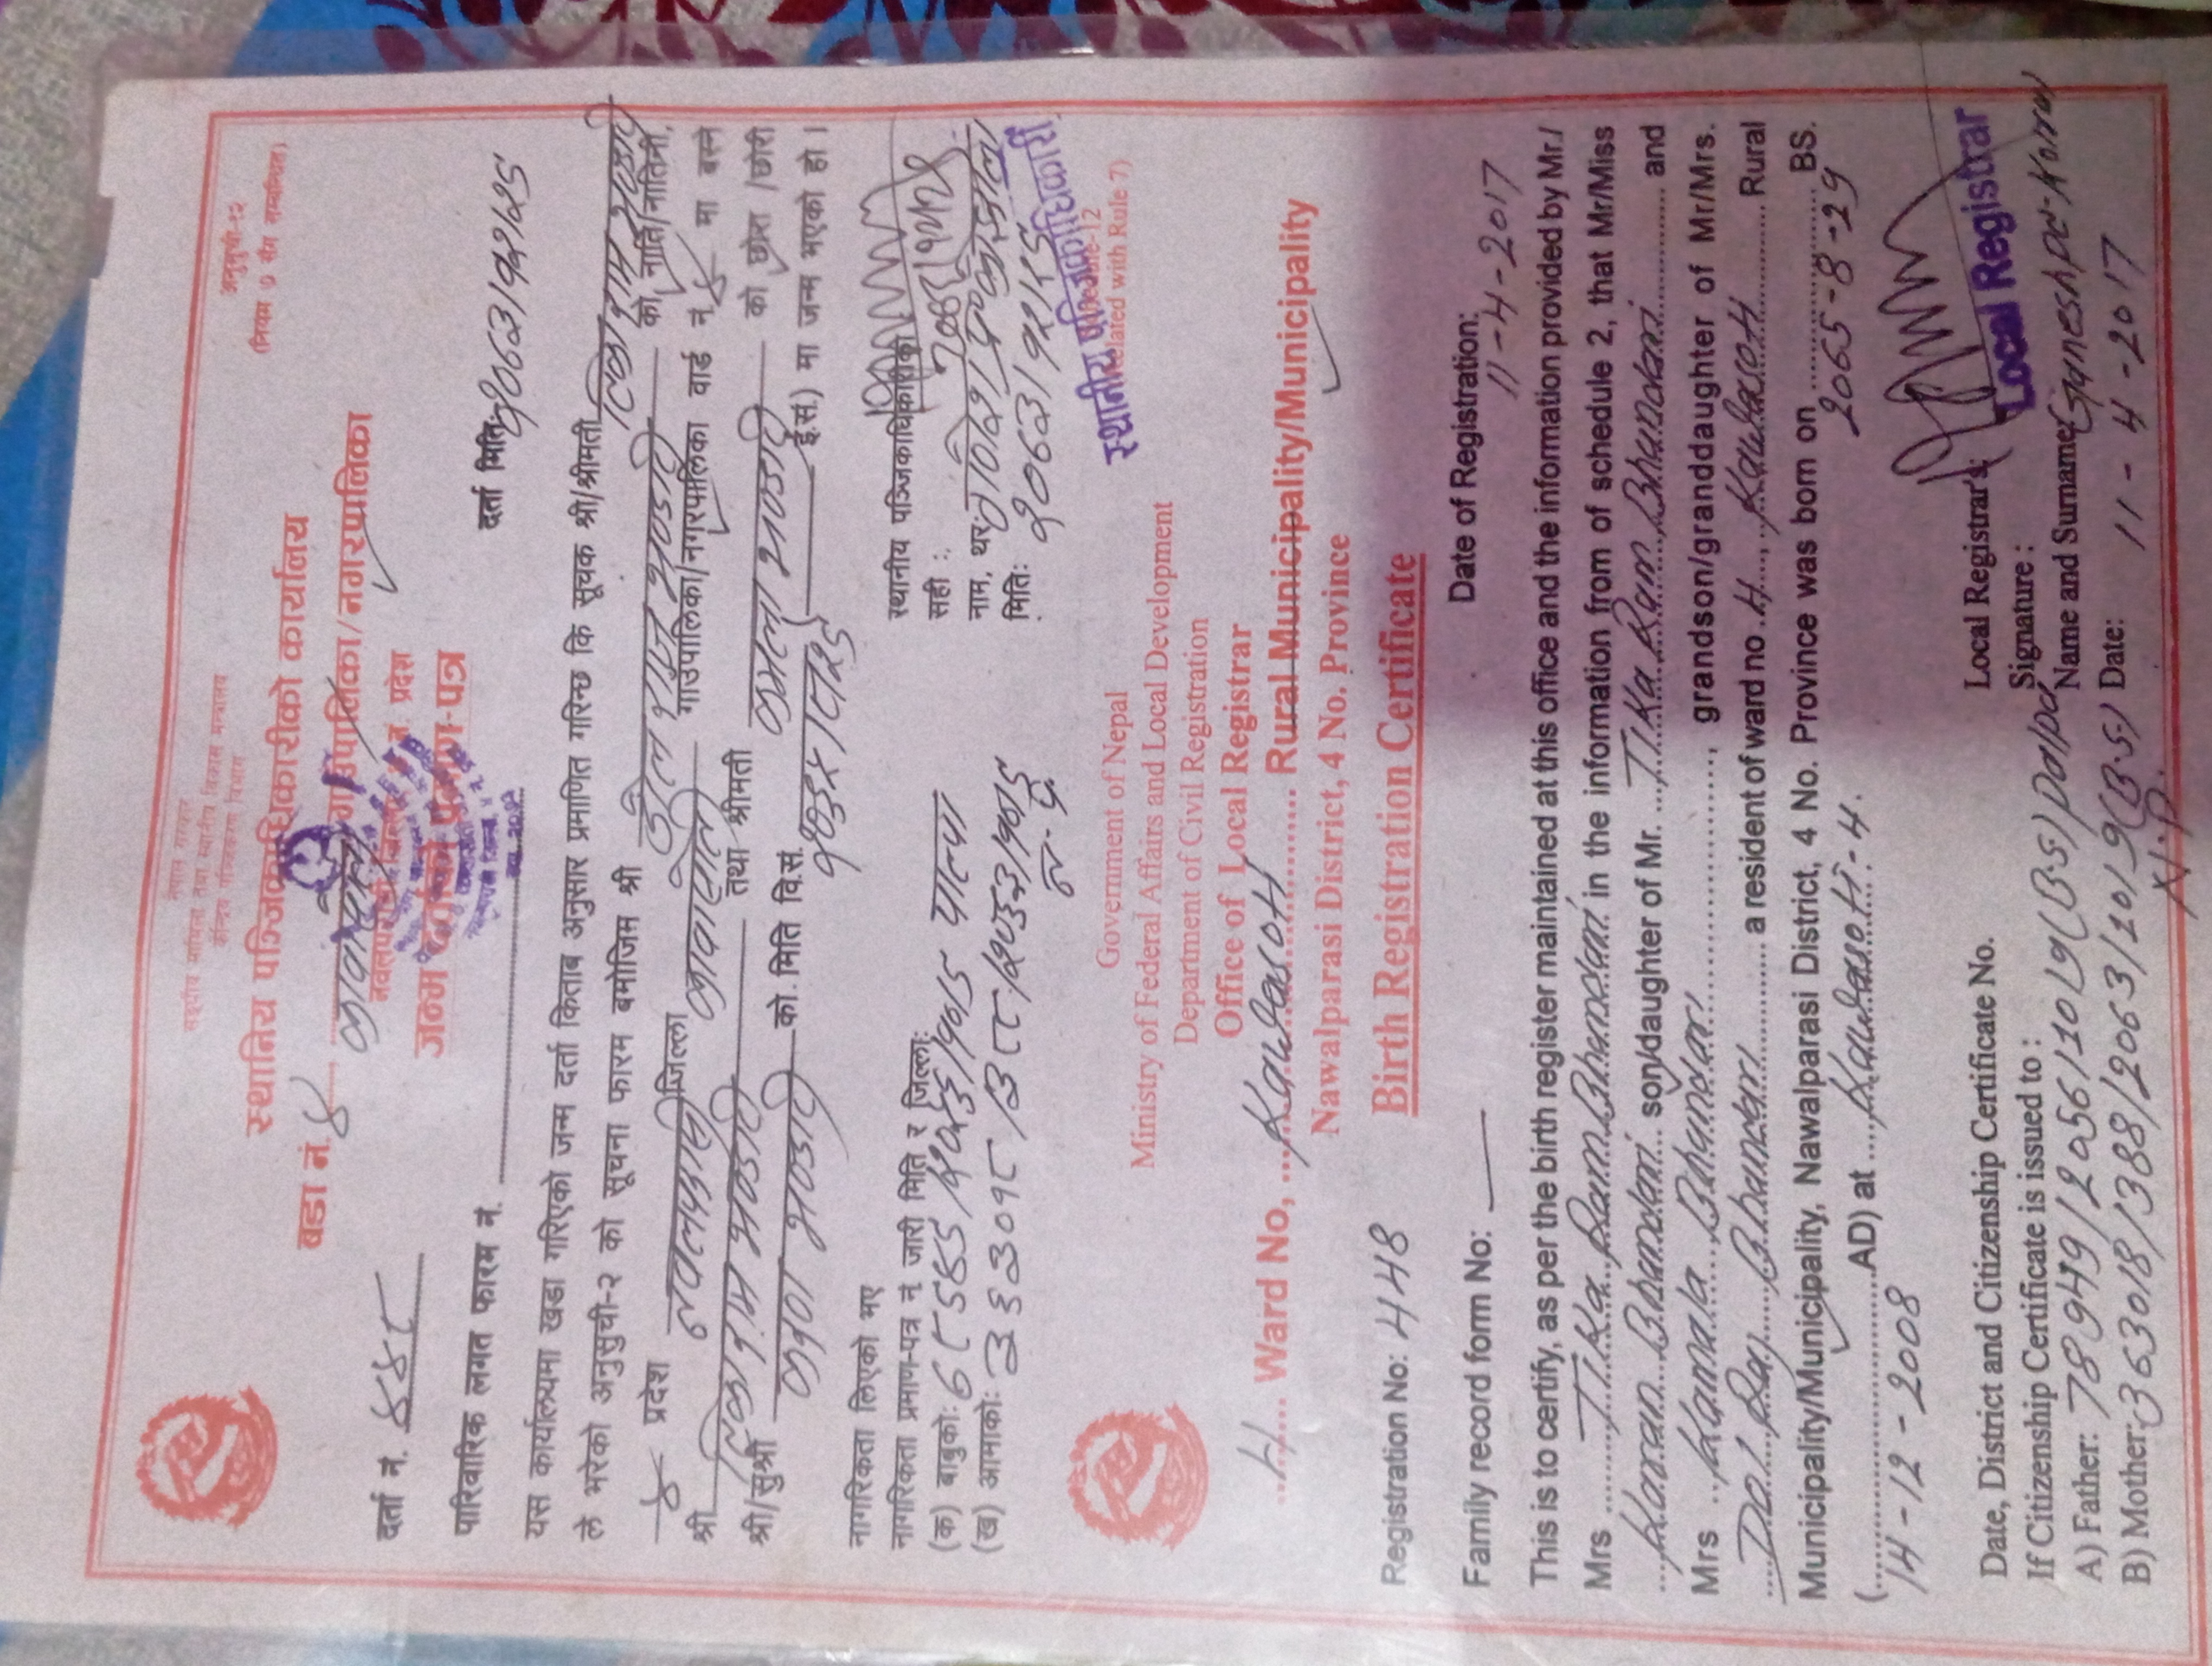 अनुसूची-१२
(नियम ७ सँग सम्बन्धित)
नेपाल सरकार
संङ्घीय मामिला तथा स्थानीय विकास मन्त्रालय
केन्द्रीय पञ्जिकरण विभाग
स्थानिय पञ्जिकाधिकारीको कार्यालय
वडा नं. ४ कावासोती गाउँपालिका/नगरपालिका
जन्म दर्ता प्रमाण-पत्र
दर्ता नं. ४४८
दर्ता मिति:
पारिवारिक लगत फारम नं.
यस कार्यालयमा रहेको जन्म दर्ता किताब अनुसार प्रमाणित गरिन्छ कि सूचक श्री/श्रीमती टिका राम भण्डारी
ले भरेको अनुसुची-२ को सूचना फारम बमोजिम श्री डोल राज भण्डारी को नाति/नातिनी,
४ प्रदेश नवलपरासी जिल्ला कावासोती गाउँपालिका/नगरपालिका वार्ड नं. ४ मा बस्ने
श्री टिका राम भण्डारी तथा श्रीमती कमला भण्डारी को छोरा/छोरी
श्री/सुश्री करण भण्डारी को मिति वि.सं. २०६५।८।२९ ई.सं.) मा जन्म भएको हो ।
नागरिकता लिएको भए
नागरिकता प्रमाण-पत्र नं जारी मिति र जिल्ला:
(क) बाबुको:
(ख) आमाको: ३६३०१८
स्थानीय पञ्जिकाधिकारीको
सही :
नाम, थर:
मिति:
स्थानीय पञ्जिकाधिकारी
Schedule-12
(Related with Rule 7)
Government of Nepal
Ministry of Federal Affairs and Local Development
Department of Civil Registration
Office of Local Registrar
4 Ward No, Kawasoti Rural Municipality/Municipality
Nawalparasi District, 4 No. Province
Birth Registration Certificate
Registration No: 448
Date of Registration: 11-4-2017
Family record form No:
This is to certify, as per the birth register maintained at this office and the information provided by Mr./
Mrs Tika Ram Bhandari in the information from of schedule 2, that Mr/Miss
Karan Bhandari son/daughter of Mr. Tika Ram Bhandari and
Mrs Kamala Bhandari, grandson/granddaughter of Mr/Mrs.
Dol Raj Bhandari a resident of ward no 4, Kawasoti Rural
Municipality/Municipality, Nawalparasi District, 4 No. Province was born on 2065-8-29 BS.
(14-12-2008 AD) at Kawasoti-4.
Date, District and Citizenship Certificate No.
If Citizenship Certificate is issued to :
A) Father: 789419/2056/10/9(B.S) Palpa
B) Mother: 363018/1388/2063/10/9(B.S) N.P.
Local Registrar's:
Signature :
Name and Surname:
Date: 11-4-2017
Local Registrar